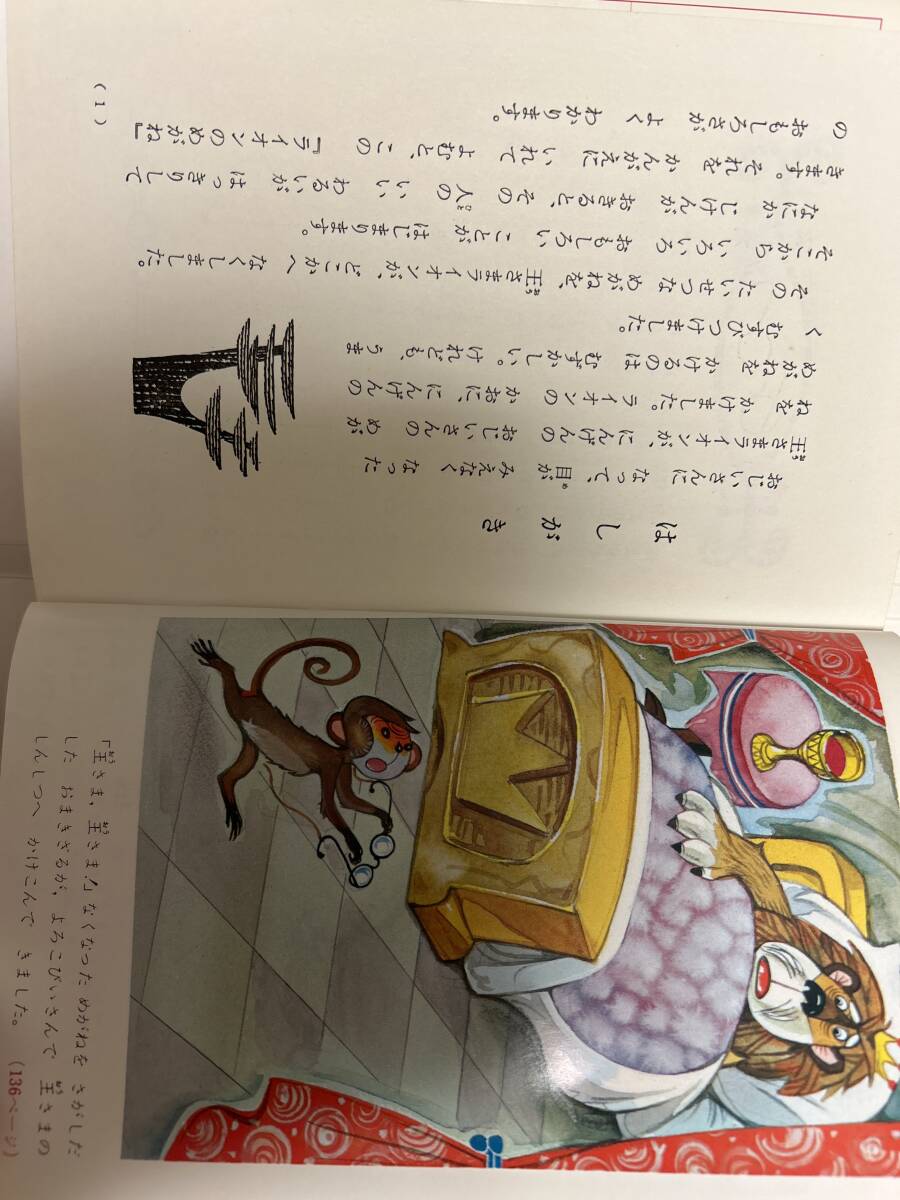 はしがき
おじいさんに なって、目が みえなく なった
王さまライオンが、にんげんの おじいさんの めが
ねを かけました。ライオンの かおに、にんげんの
めがねを かけるのは むずかしい。けれども、うま
く むすびつけました。
その たいせつな めがねを、王さまライオンが、どこかへ なくしました。
そこから いろいろ おもしろい ことが はじまります。
なにか じけんが おきると、その 人の いい わるいが はっきりして
きます。それを かんがえに いれて よむと、この 『ライオンのめがね』
の おもしろさが よく わかります。
(1)
「王さま、王さま！」なくなった めがねを さがしだ
した おまきざるが、よろこびいさんで 王さまの
しんしつへ かけこんで きました。 (136ページ)